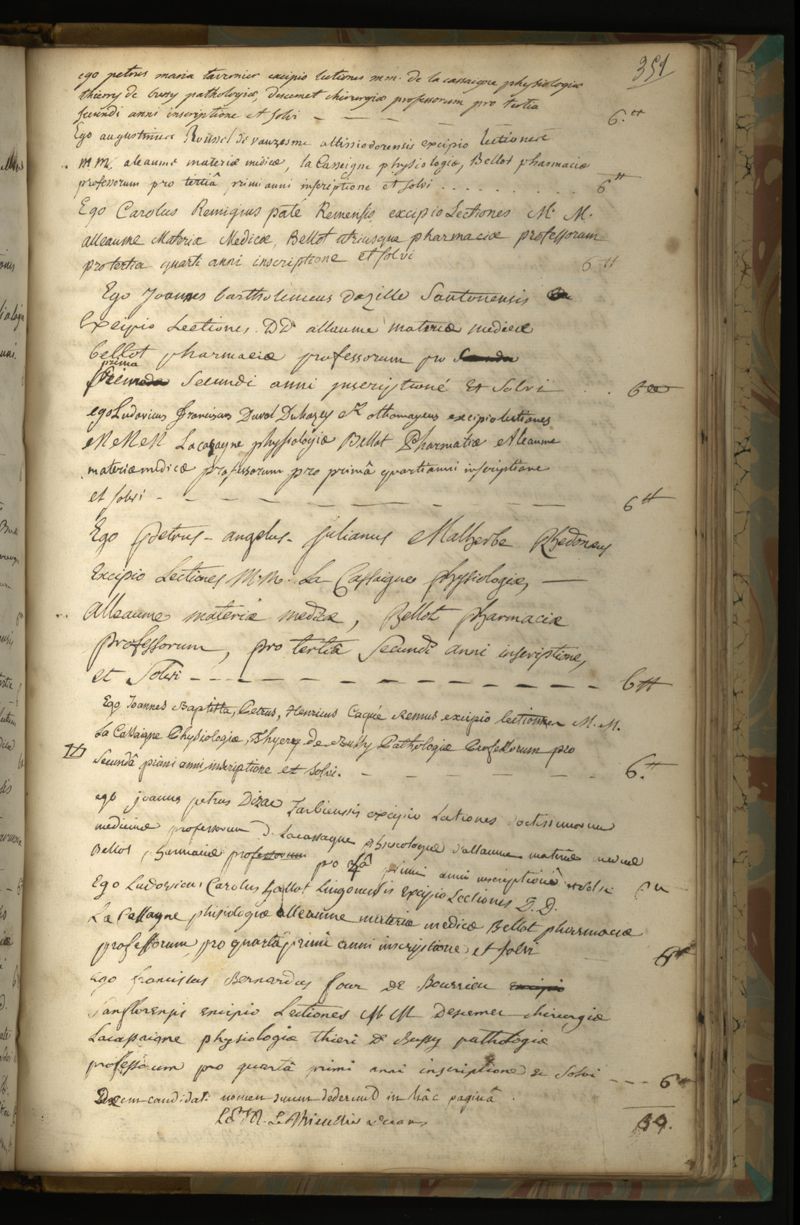 351
ego petrus maria tavernier excipio lectiones mm. de la cassaigne physiologiæ
thierry de bussy pathologiæ, descemet chirurgiæ professorum pro tertia
secundi anni inscriptione et solvi — — — — — 6.tt
Ego augustinus Roussel de vauzesme altissiodorensis excipio lectiones
m m. aleaume materiæ medicæ, la Casseigne physiologiæ, Bellot pharmaciæ
professorum pro tertiâ primi anni inscriptione et solvi . . . . . . . . . . 6 tt
Ego Carolus Remigius paté Remensis excipio Lectiones M. M.
alleaume Materiæ Medicæ, Bellot utriusque pharmaciæ professorum
pro tertia quarti anni inscriptione et solvi 6 tt
Ego Joannes bartholimeus dazille Santonensis
Excipio Lectiones. DD. allaume materiæ medicæ
bellot pharmaciæ professorum pro
prima
Secundi anni inscriptioné Et Solvi . . 6
ego Ludovicus franciscus Duval Duhazey excipio lectiones
MMM Lacasagne physiologiæ Bellot Pharmatiæ Aleaume
materiæ medicæ professorum pro primâ quarti anni inscriptione
et solvi - — — — — — — — 6 tt
Ego Petrus - angelus - julianus Malherbe Rhedonæus
Excipio Lectiones M.M. La Cassaigne physiologiæ, —
Alleaume materiæ medicæ, Bellot pharmaciæ
professorum, pro tertiâ Secundi anni inscriptione,
et Solvi — — — — — — — — — — 6 tt
Ego Joannes Baptista, Petrus, Henricus Caqué Remus excipio lectiones M. M.
La Cassaigne Physiologiæ, Thyerry de Bussy Pathologiæ Professorum pro
Secundâ primi anni inscriptione et solvi. — — — — — 6. tt
ego joannes petrus Dizac Tarbiensis excipio Lectiones doctissimorum
medicinæ professorum D. Lacassagne physiologiæ d'allaume materiæ medicæ
Bellot pharmaciæ professorum pro 4â primi anni inscriptione et solvi
Ego Ludovicus Carolus hallot Lingonensis Excipio Lectiones D.D.
La Cassagne phisiologiæ alleaume materiæ medicæ Bellot pharmaciæ
professorum pro quartâ primi anni inscriptione et solvi — 6 tt
Ego franciscus Bernardus four de Bourrieu excipio
Sanflorensis excipio Lectiones M M Descemet chirurgiæ
Lacassaigne physiologiæ thieri de Bussy pathologiæ
professorum pro quartâ primi anni inscriptione & Solvi - - - 6 tt
Decem candidati nomen suum dederunt in hâc paginâ.
L. Le Thieullier decanus